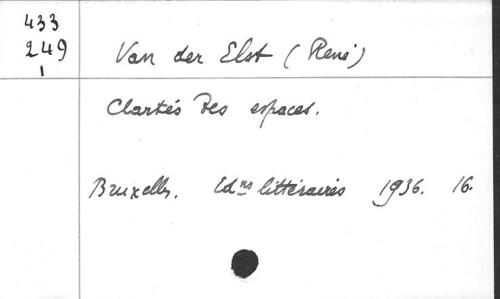 433
249
1
Van der Elst (René)
Clartés des espaces.
Bruxelles. Edns littéraires 1936. 16.